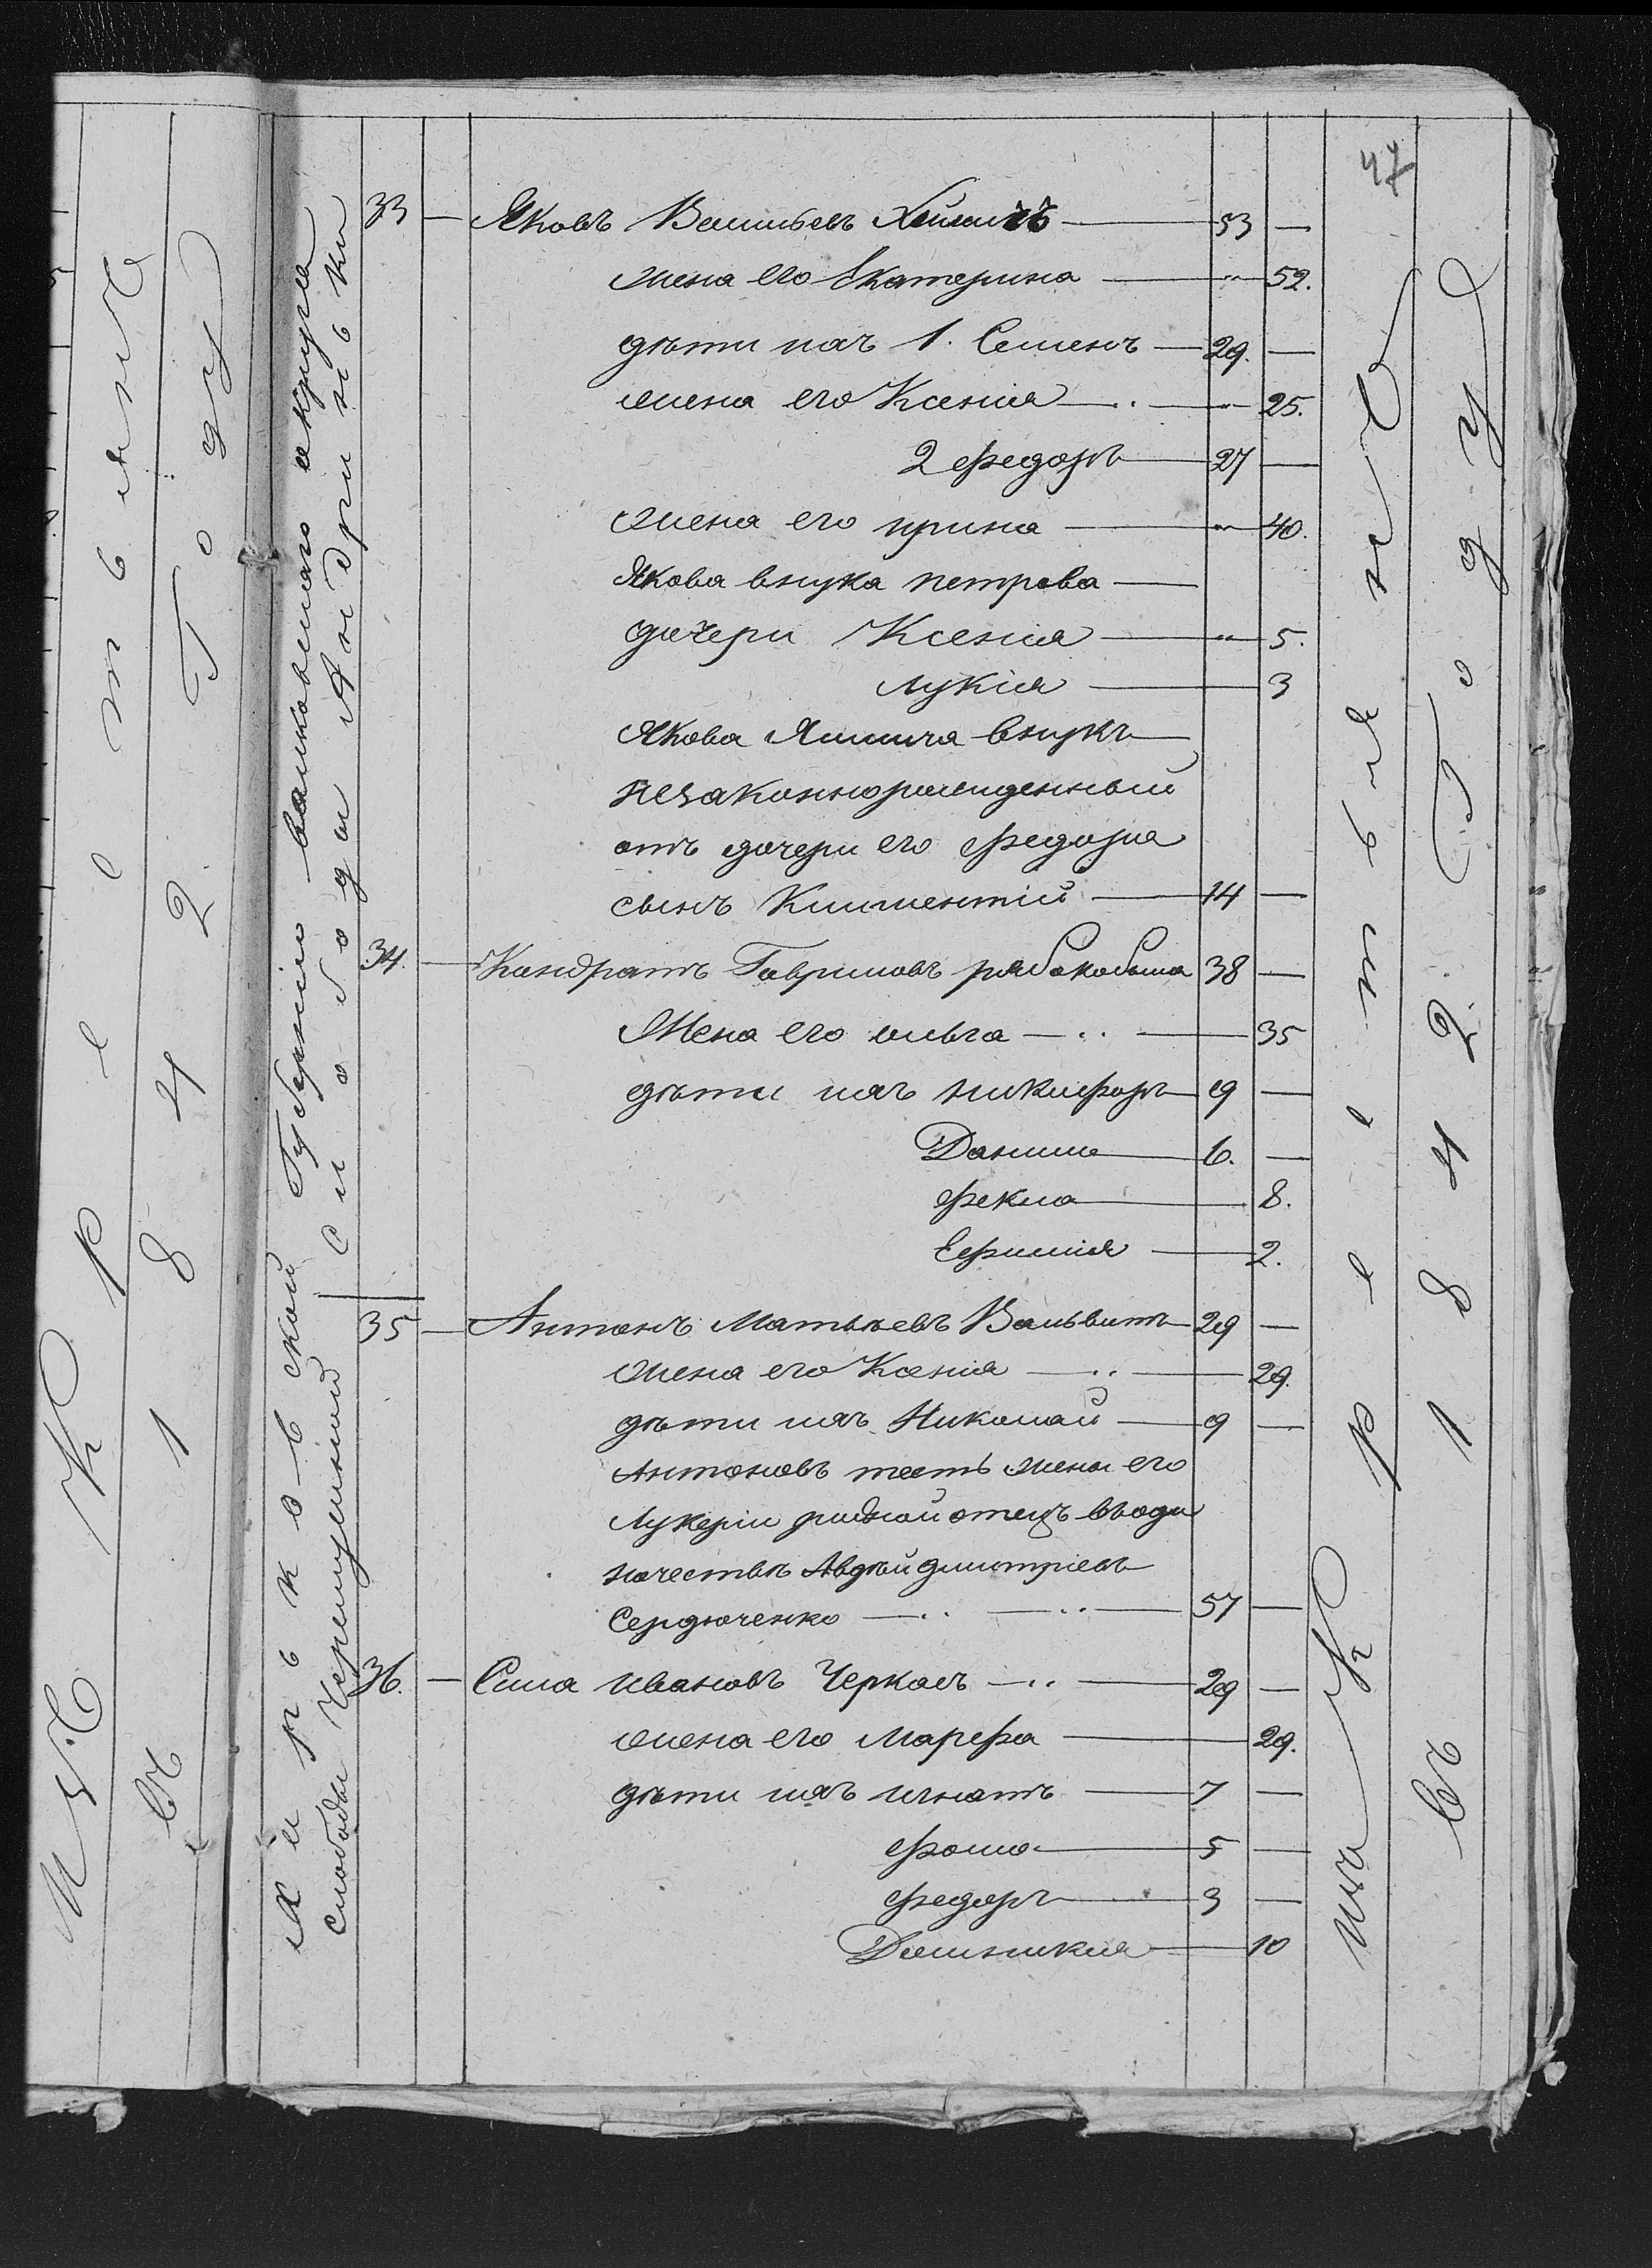 47
33 — Яковъ Васильевъ — 53 —
жена его Екатерина — " — 52.
дѣти ихъ 1. Семенъ — 29. —
жена его Ксенія — " — 25.
2 Федоръ — 27 —
жена его ирина — " — 40.
Якова внука петрова —
дочери Ксенія — " — 5.
лукія — 3
Якова внукъ —
незаконнорожденный
отъ дочери его Федоры
сынъ Климентій — 14 —
34. — Кондратъ Гавриловъ рябокобыла 38 —
Жена его ольга — 35
дѣти ихъ никифоръ — 9 —
Данило — 6. —
Фекла — 8.
Ефимія — 2.
35 — Антонъ Матвѣевъ Вальвитъ — 29 —
жена его Ксенія — 29.
дѣти ихъ Николай — 9 —
Антоновъ тесть жены его
Лукеріи родной отецъ вводи
ночествѣ Авдѣй дмитріевъ
Сердюченко — 57 —
36. — Сила ивановъ Черкасъ — 29 —
жена его Марефа — 29.
дѣти ихъ игнатъ — 7 —
Фома — 5 —
Федоръ — 3 —
Домникия — 10
Харьковской Губерніи валковскаго округа
слободы Черемушной Слободы Андриньки
изъ Крестьянъ
въ 1842. Году
изъ Крестьянъ
въ 1842. Году